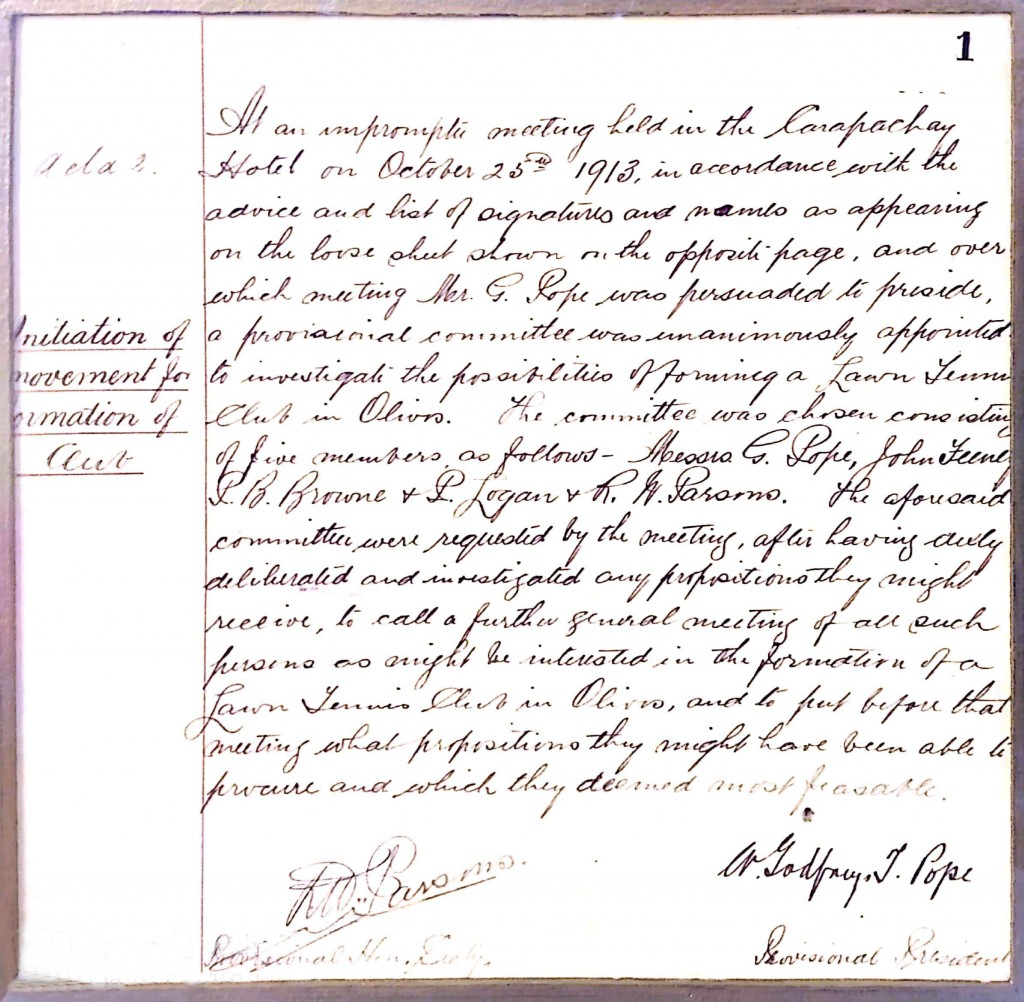 1
At an impromptu meeting held in the Carapachay
Acta 2.
Hotel on October 25th 1913, in accordance with the
advice and list of signatures and names as appearing
on the loose sheet shown on the opposite page, and over
which meeting Mr. G. Pope was persuaded to preside,
a provisional committee was unanimously appointed
to investigate the possibilities of forming a Lawn Tennis
Club in Olivos. The committee was chosen consisting
of five members, as follows - Messrs G. Pope, John Feeney
P. B. Browne & P. Logan & R. W. Parsons. The aforesaid
committee were requested by the meeting, after having duly
deliberated and investigated any propositions they might
receive, to call a further general meeting of all such
persons as might be interested in the formation of a
Lawn Tennis Club in Olivos, and to put before that
meeting what propositions they might have been able to
procure and which they deemed most feasable.
Initiation of
movement for
formation of
Club
RW. Parsons.
Provisional Hon. Secty.
W. Godfrey. T. Pope
Provisional President